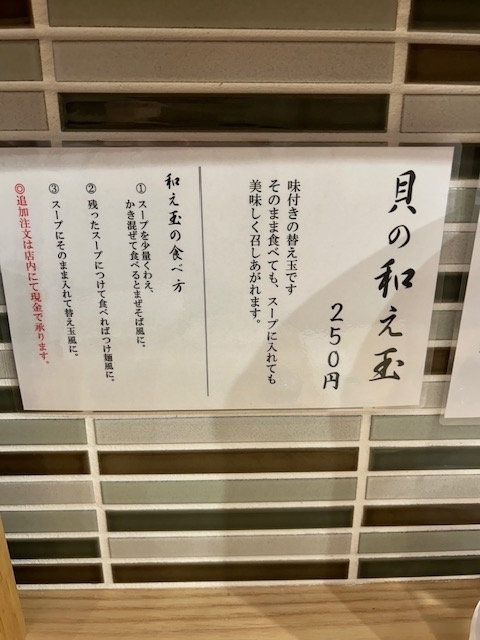 貝の和え玉
250円
味付きの替え玉です
そのまま食べても、スープに入れても
美味しく召しあがれます。
和え玉の食べ方
①スープを少量くわえ、
かき混ぜて食べるとまぜそば風に。
②残ったスープにつけて食べればつけ麺風に。
③スープにそのまま入れて替え玉風に。
◎追加注文は店内にて現金で承ります。